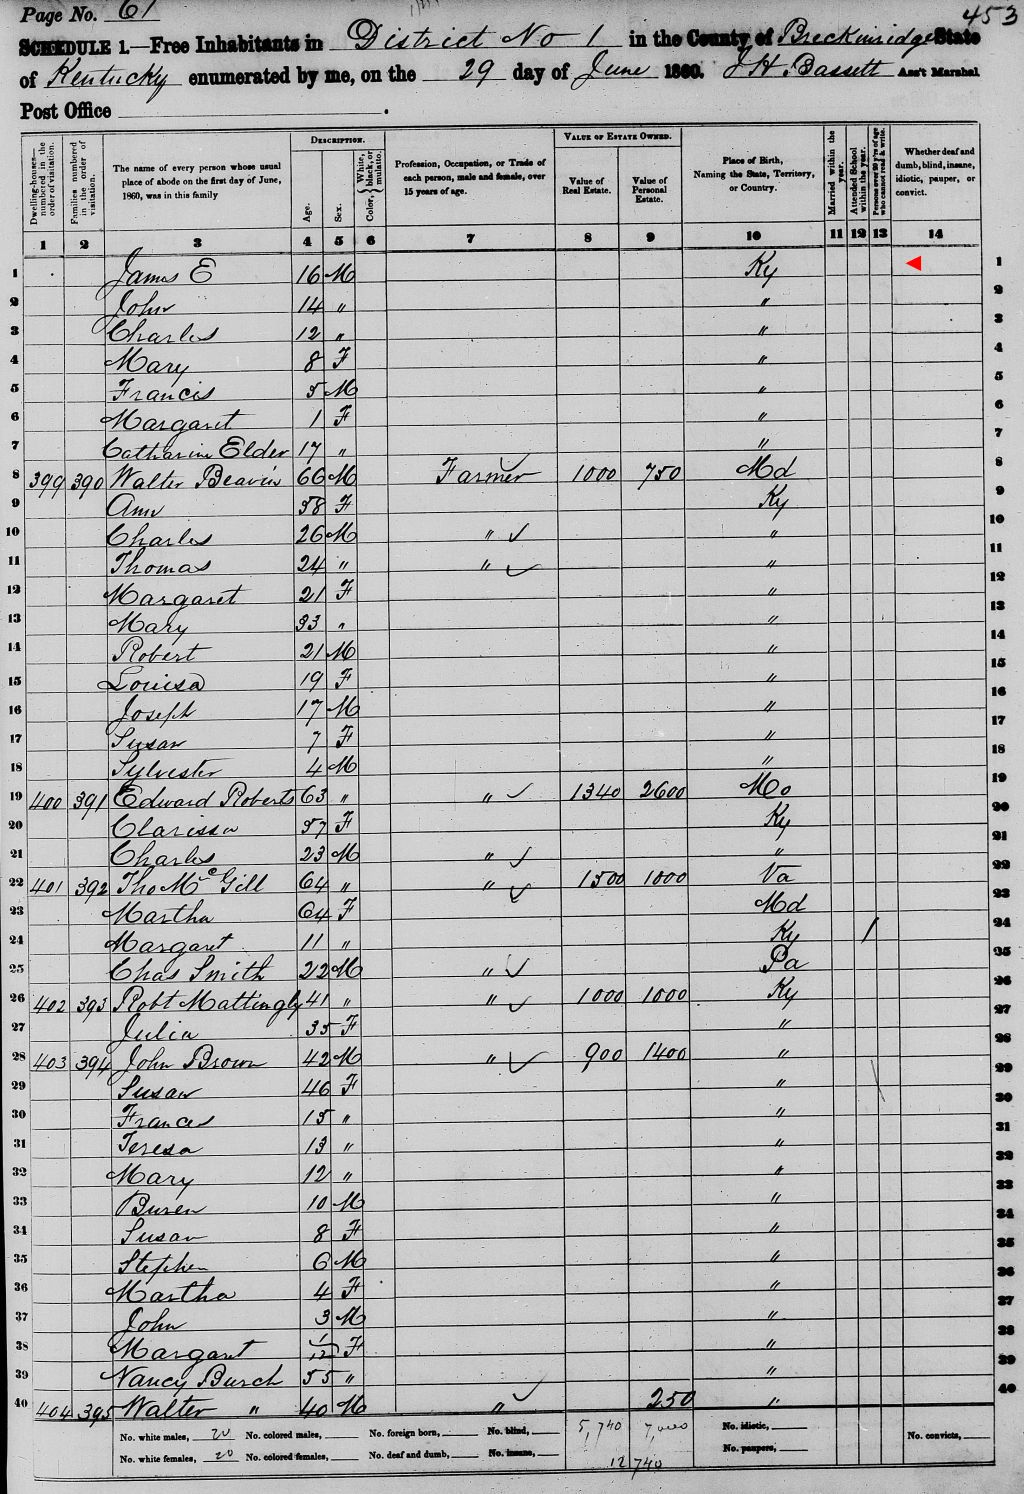 Page No. 61
453
SCHEDULE 1.—Free Inhabitants in District No 1 in the County of Breckinridge State
of Kentucky enumerated by me, on the 29 day of June 1860. J H. Bassett Ass't Marshal
Post Office
Dwelling-houses—numbered in the order of visitation.
Families numbered in the order of visitation.
The name of every person whose usual place of abode on the first day of June, 1860, was in this family
DESCRIPTION.
Age.
Sex.
Color, { White, black, or mulatto.
Profession, Occupation, or Trade of each person, male and female, over 15 years of age.
VALUE OF ESTATE OWNED.
Value of Real Estate.
Value of Personal Estate.
Place of Birth, Naming the State, Territory, or Country.
Married within the year.
Attended School within the year.
Persons over 20 y'rs of age who cannot read & write.
Whether deaf and dumb, blind, insane, idiotic, pauper, or convict.
1 2 3 4 5 6 7 8 9 10 11 12 13 14
1 James E 16 M Ky 1
2 John 14 " " 2
3 Charles 12 " " 3
4 Mary 8 F " 4
5 Francis 5 M " 5
6 Margaret 1 F " 6
7 Catharine Elder 17 " " 7
8 399 390 Walter Beavin 66 M Farmer 1000 750 Md 8
9 Ann 58 F Ky 9
10 Charles 26 M " " 10
11 Thomas 24 " " " 11
12 Margaret 21 F " 12
13 Mary 33 " " 13
14 Robert 21 M " 14
15 Louisa 19 F " 15
16 Joseph 17 M " 16
17 Susan 7 F " 17
18 Sylvester 4 M " 18
19 400 391 Edward Roberts 63 " " 1340 2600 Mo 19
20 Clarissa 57 F Ky 20
21 Charles 23 M " " 21
22 401 392 Tho McGill 64 " " 1500 1000 Va 22
23 Martha 64 F Md 23
24 Margaret 11 " Ky 1 24
25 Chas Smith 22 M " Pa 25
26 402 393 Robt Mattingly 41 " " 1000 1000 Ky 26
27 Julia 35 F " 27
28 403 394 John Brown 42 M " 900 1400 " 28
29 Susan 46 F " 29
30 Frances 15 " " 30
31 Teresa 13 " " 31
32 Mary 12 " " 32
33 Buren 10 M " 33
34 Susan 8 F " 34
35 Stephen 6 M " 35
36 Martha 4 F " 36
37 John 3 M " 37
38 Margaret 1/12 F " 38
39 Nancy Burch 55 " " 39
40 404 395 Walter " 40 M " 250 " 40
No. white males, 20 No. colored males, No. foreign born, No. blind, 5,740 7,000 No. idiotic, No. convicts,
No. white females, 20 No. colored females, No. deaf and dumb, No. insane, 12,740 No. paupers,